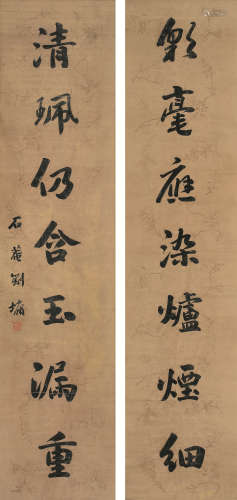 彩毫應染爐煙細
清珮仍含玉漏重
石菴劉墉